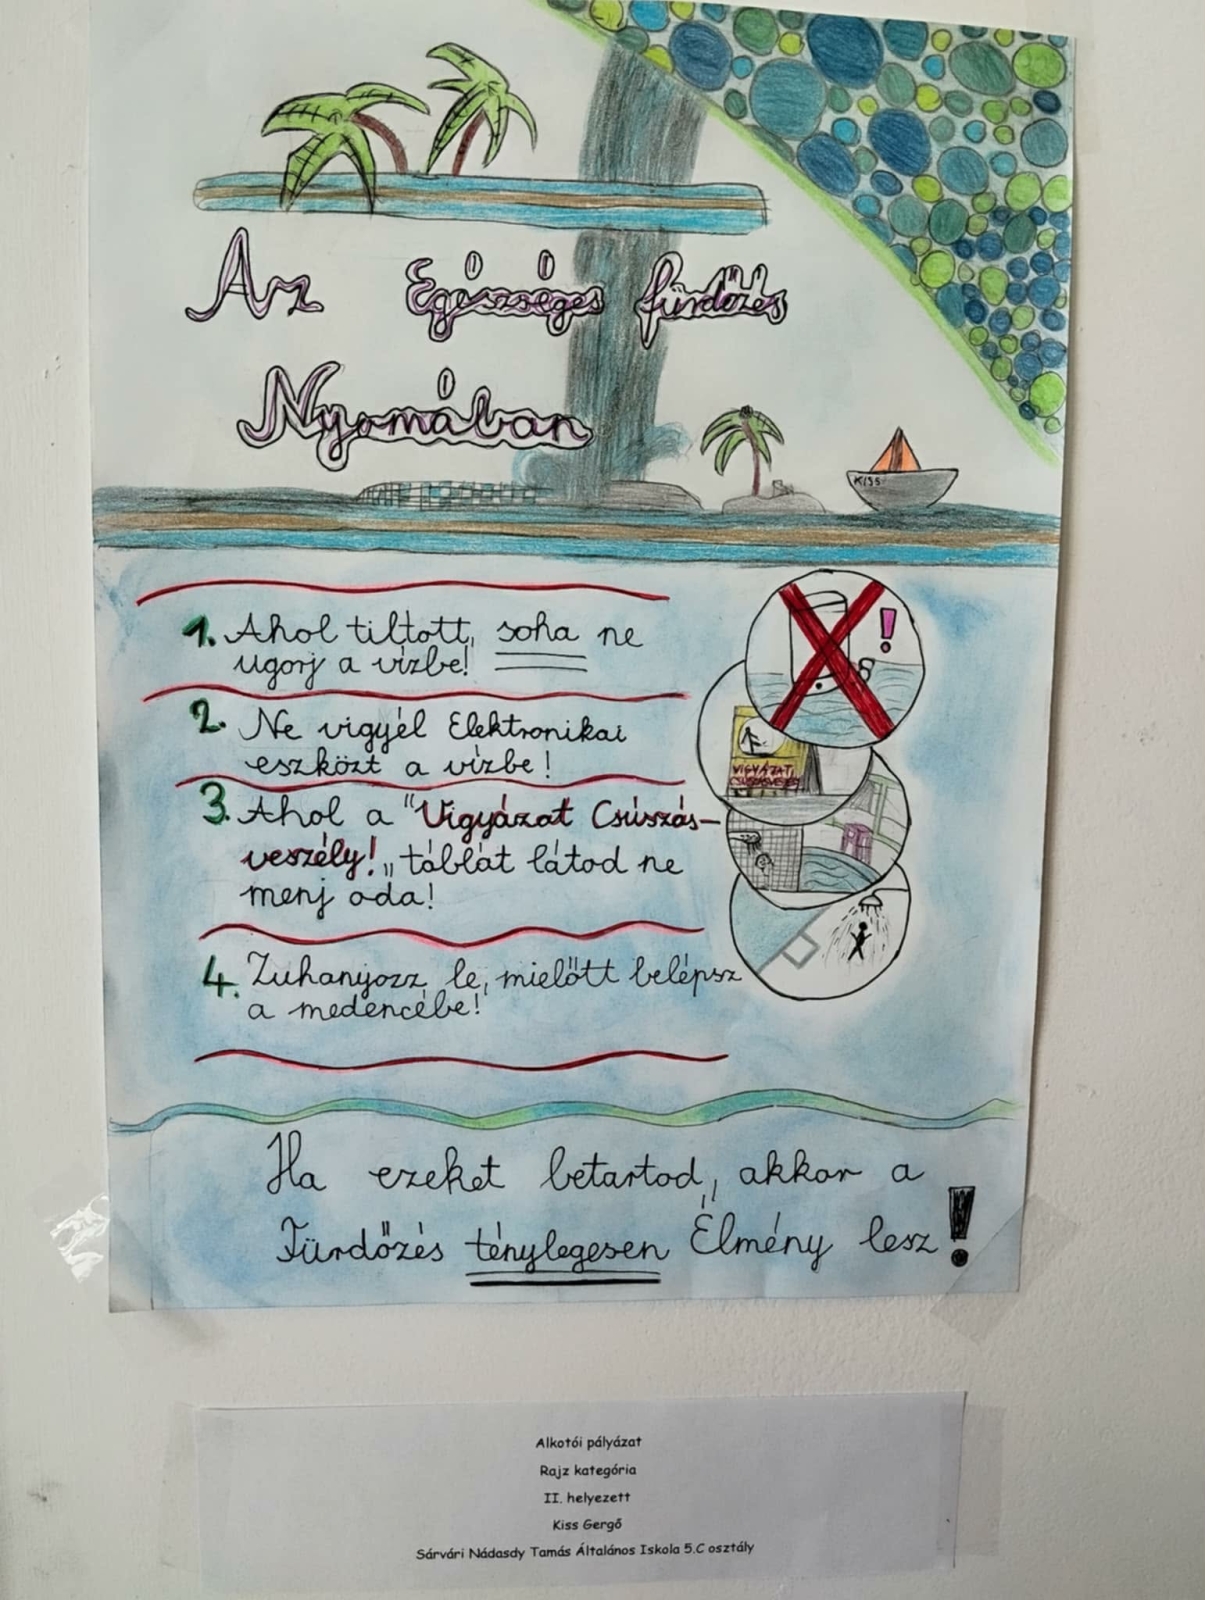 Az Egészséges fürdőzés
Nyomában
KISS
1. Ahol tiltott, soha ne
ugorj a vízbe!
!
2. Ne vigyél Elektronikai
eszközt a vízbe!
VIGYÁZAT
CSÚSZÁSVESZÉLY
3. Ahol a "Vigyázat Csúszás-
veszély!„ táblát látod ne
menj oda!
4. Zuhanyozz le, mielőtt belépsz
a medencébe!
Ha ezeket betartod, akkor a
Fürdőzés ténylegesen Élmény lesz!
Alkotói pályázat
Rajz kategória
II. helyezett
Kiss Gergő
Sárvári Nádasdy Tamás Általános Iskola 5.C osztály